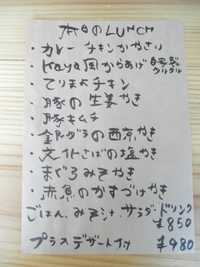 本日のLUNCH
・カレー チキンかやさい
・Kaya風からあげ
・てりまよチキン
・豚の生姜やき
・豚キムチ
・銀ダラの西京やき
・文化さばの塩やき
・まぐろみそやき
・赤魚のかすづけやき
ごはん、みそ汁、サラダ・ドリンク
¥850
プラスデザート付 ¥980